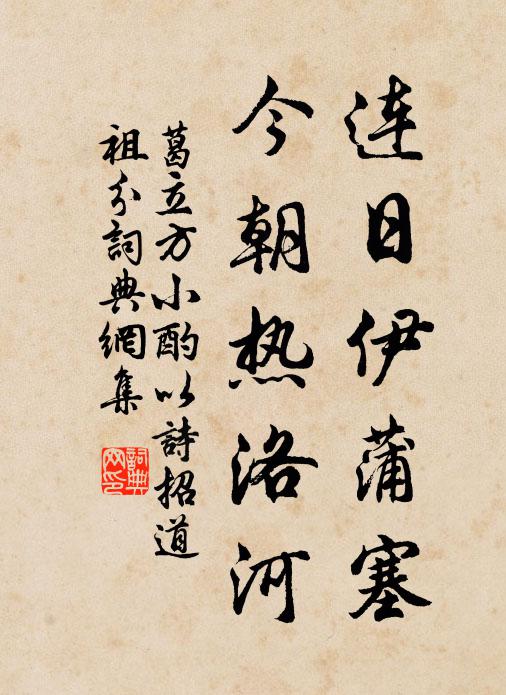 连日伊蒲塞
今朝热洛河
葛立方小酌以詩招道
祖分詞典網集
詞典网印